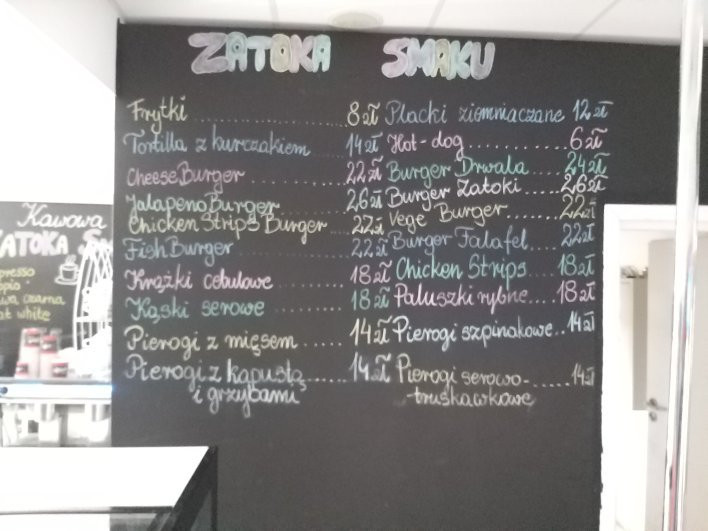 ZATOKA SMAKU
Frytki ........ 8 zł
Tortilla z kurczakiem 14 zł
CheeseBurger ........ 22 zł
Jalapeno Burger ........ 26 zł
Chicken Strips Burger .... 22 zł
Fish Burger ........ 22 zł
Krążki cebulowe ........ 18 zł
Kąski serowe ........ 18 zł
Pierogi z mięsem ...... 14 zł
Pierogi z kapustą ...... 14 zł
i grzybami
Placki ziemniaczane 12 zł
Hot-dog ........... 6 zł
Burger Drwala ..... 24 zł
Burger Zatoki ..... 26 zł
Vege Burger ....... 22 zł
Burger Falafel .... 22 zł
Chicken Strips .... 18 zł
Paluszki rybne .... 18 zł
Pierogi szpinakowe .. 14 zł
Pierogi serowo- ...... 14 zł
truskawkowe
Kawowa
ZATOKA